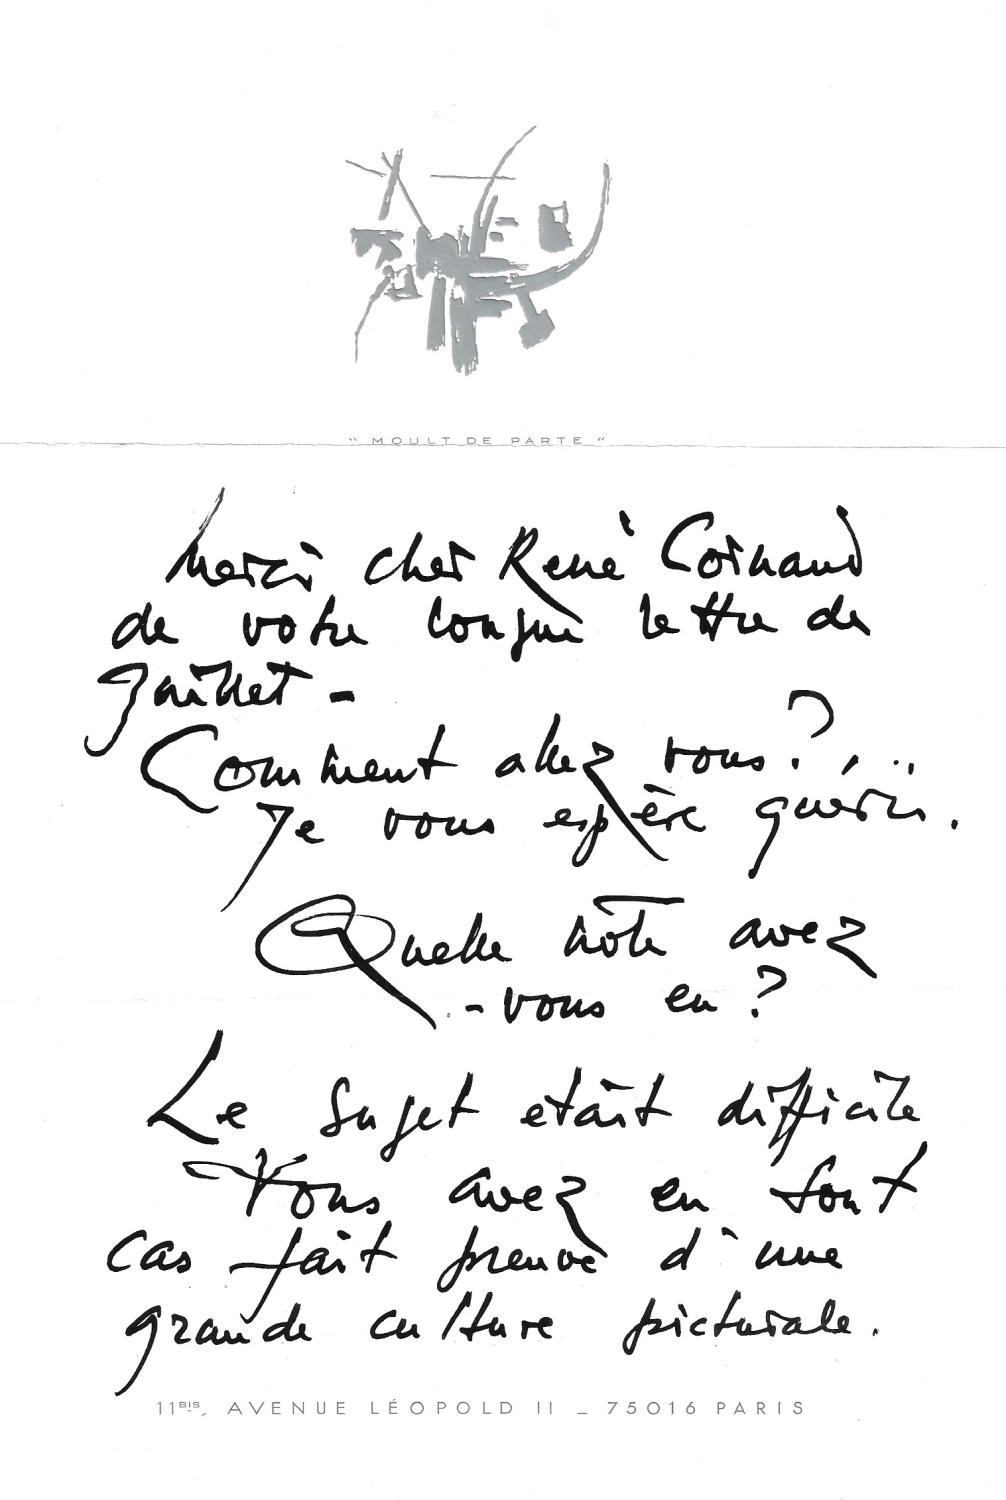 " MOULT DE PARTE "
Merci cher René Cornaud
de votre longue lettre de
Juillet -
Comment allez vous? ...
Je vous espère guéri.
Quelle note avez
-vous eu ?
Le sujet etait difficile
Vous avez en tout
cas fait preuve d'une
grande culture picturale.
11BIS, AVENUE LÉOPOLD II _ 75016 PARIS